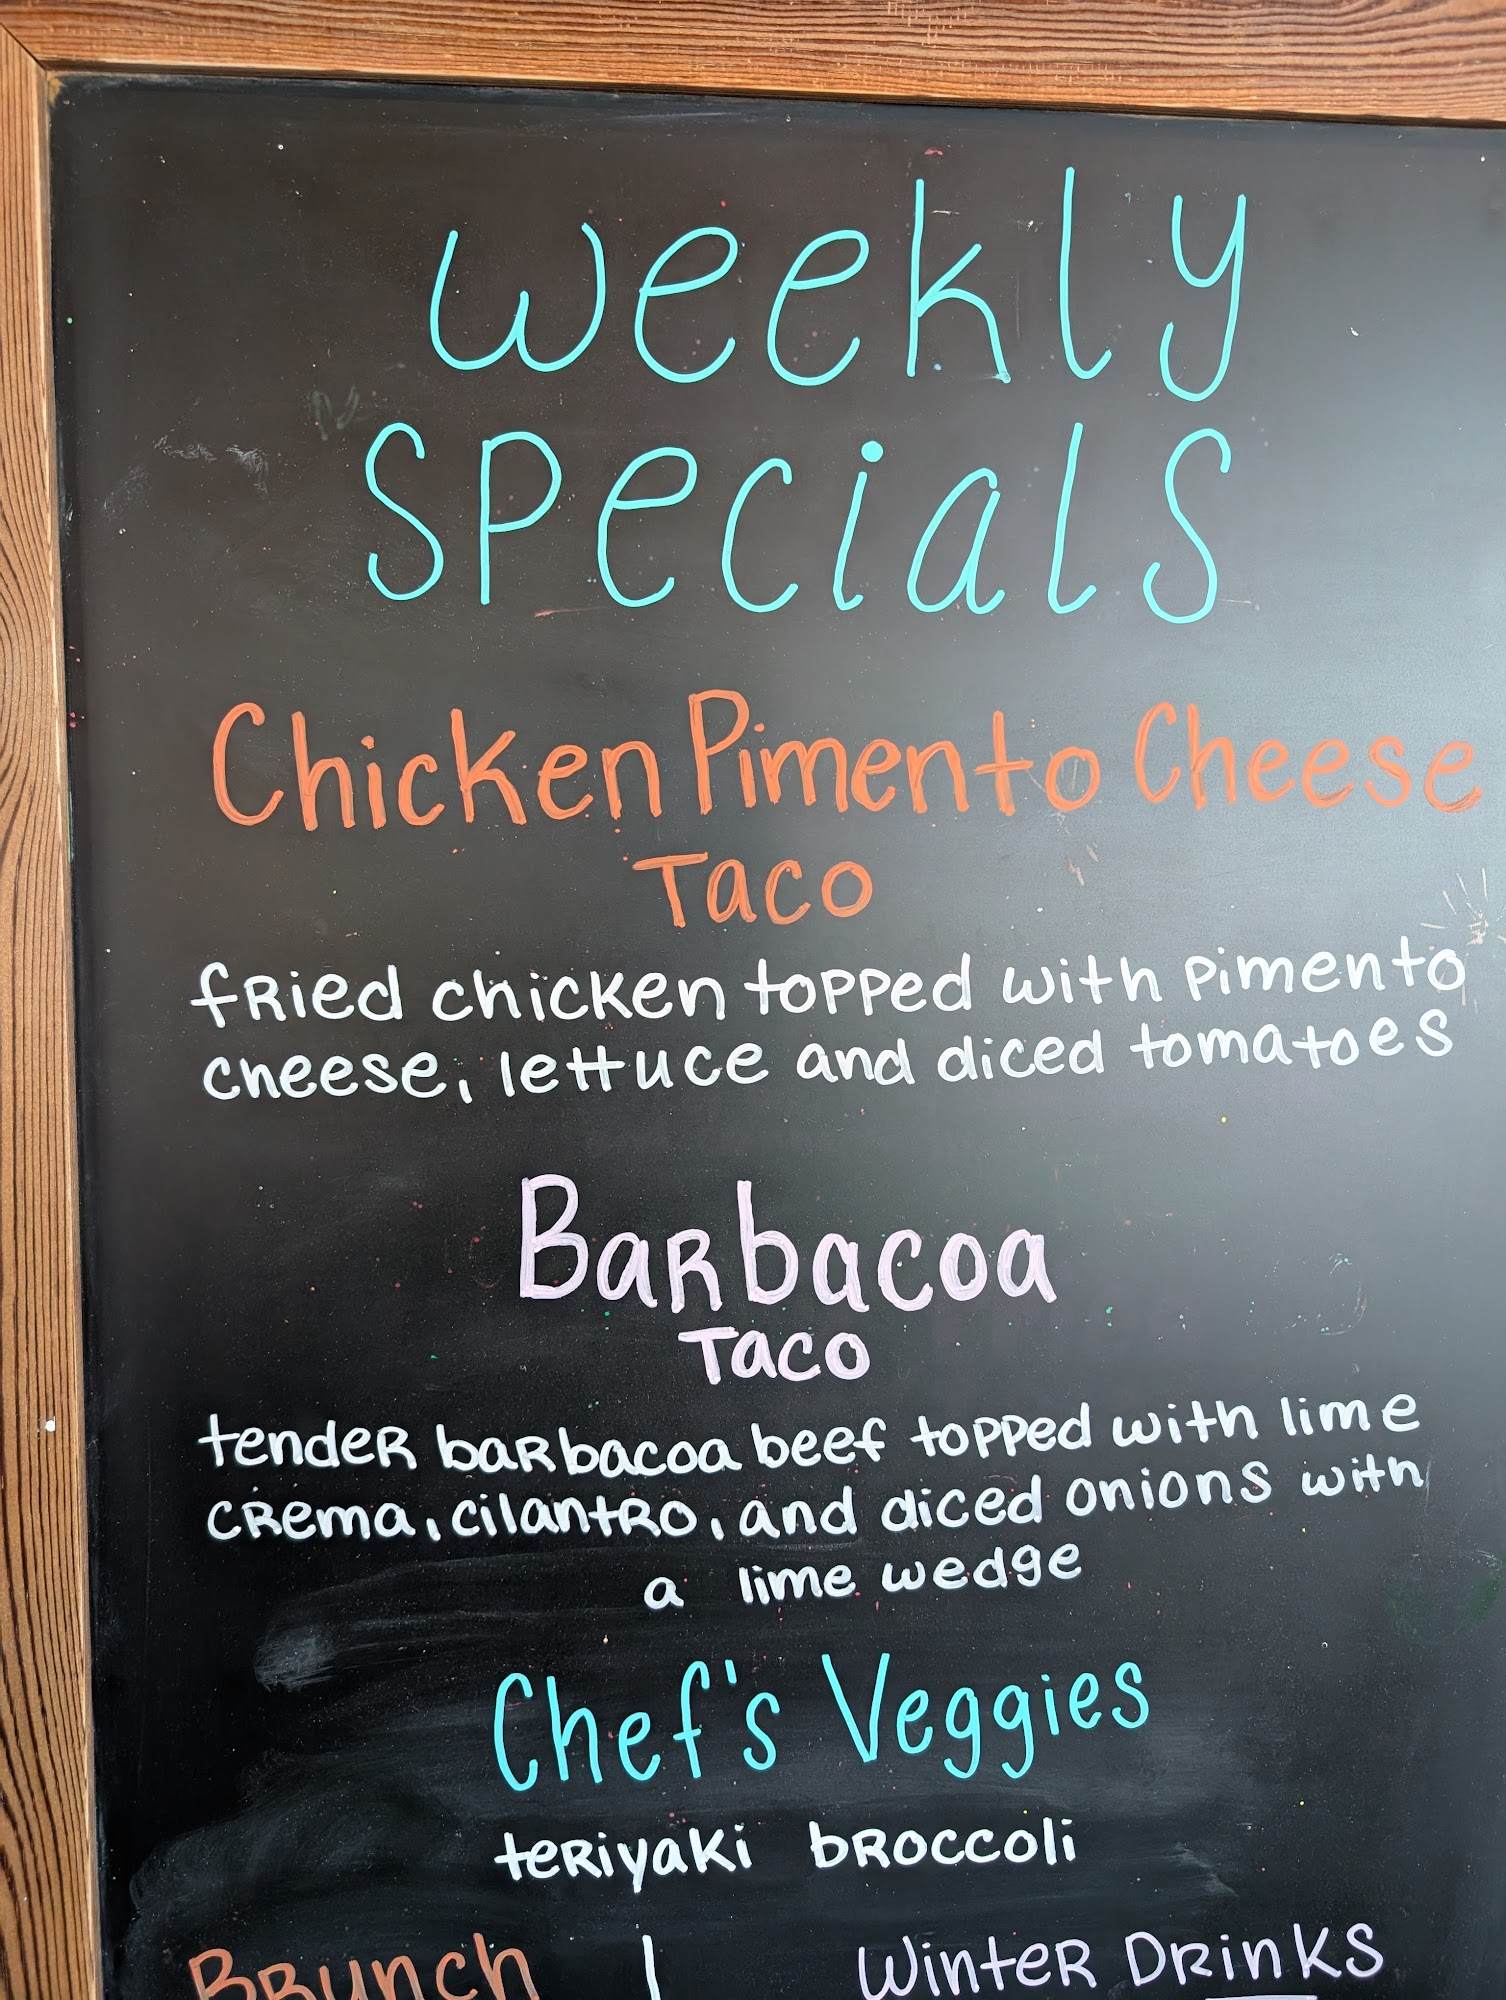 weekly
specials
Chicken Pimento Cheese
Taco
fried chicken topped with pimento
cheese, lettuce and diced tomatoes
Barbacoa
Taco
tender barbacoa beef topped with lime
crema, cilantro, and diced onions with
a lime wedge
Chef's Veggies
teriyaki broccoli
Brunch | Winter Drinks